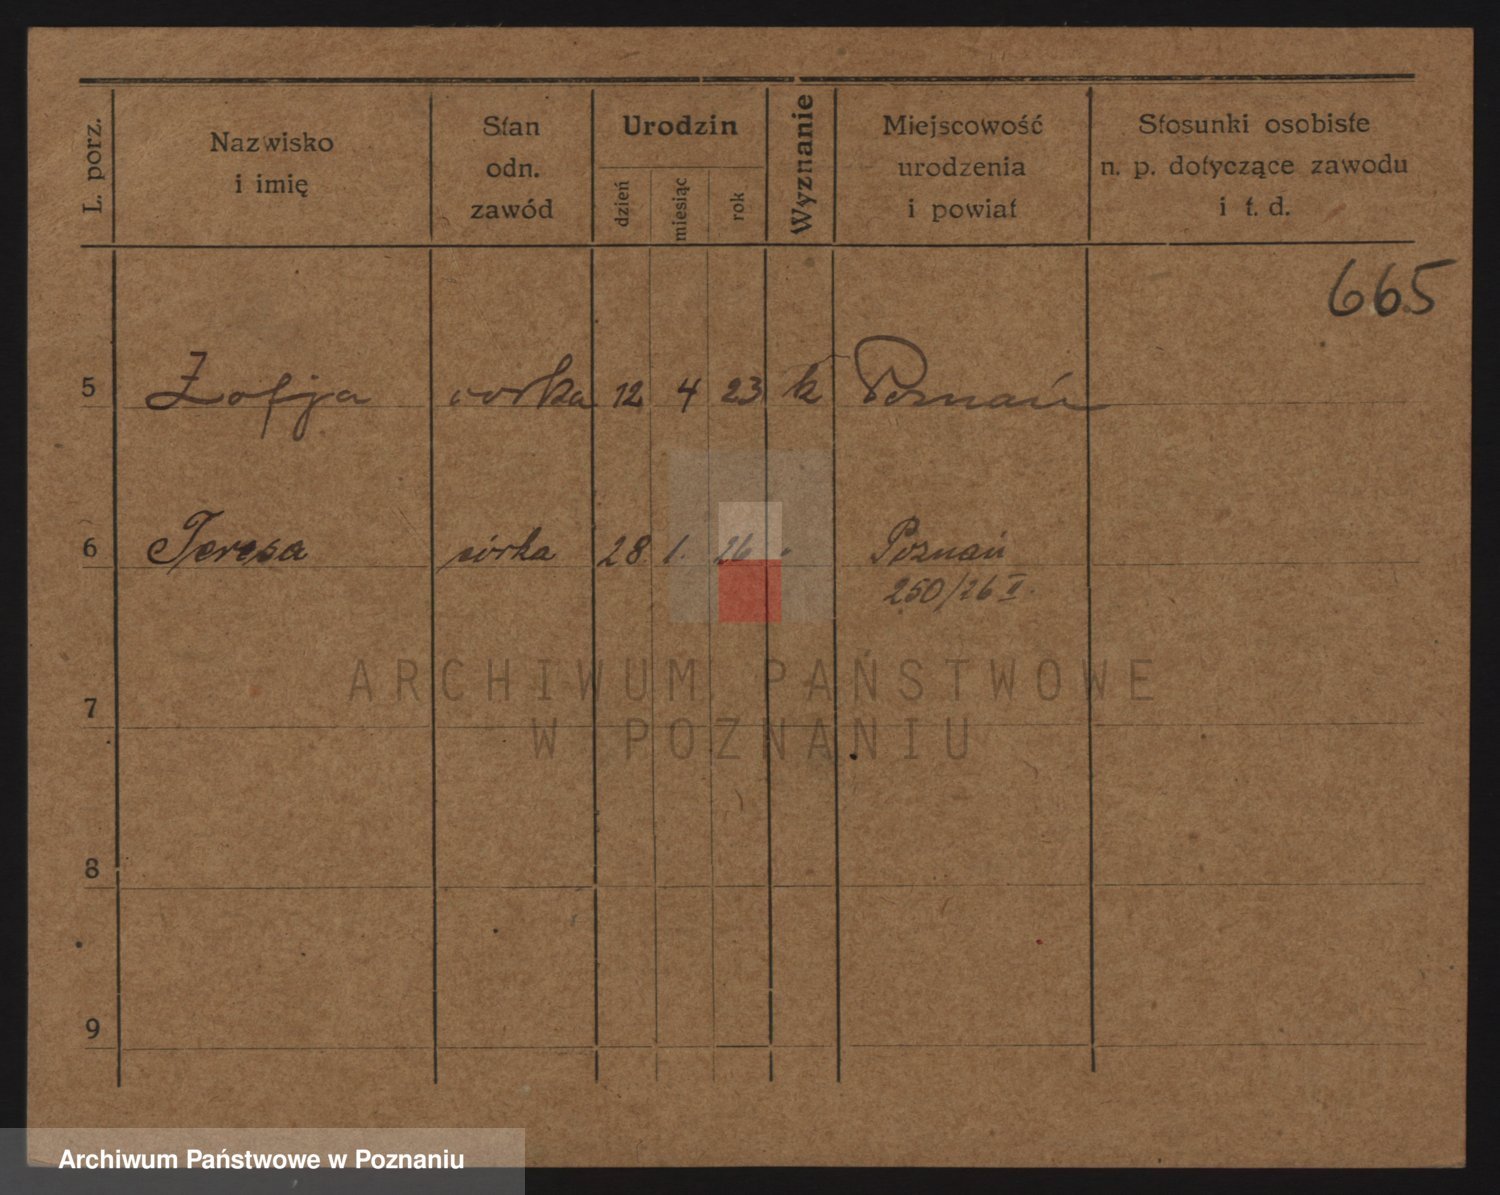 L. porz.
Nazwisko
i imię
Stan
odn.
zawód
Urodzin
dzień
miesiąc
rok
Wyznanie
Miejscowość
urodzenia
i powiat
Stosunki osobiste
n. p. dotyczące zawodu
i t. d.
665
5 Zofja corka 12 4 23 k Poznań
6 Teresa córka 28 1. 26 " Poznań
250/26 II.
7
8
9
ARCHIWUM PAŃSTWOWE
W POZNANIU
Archiwum Państwowe w Poznaniu